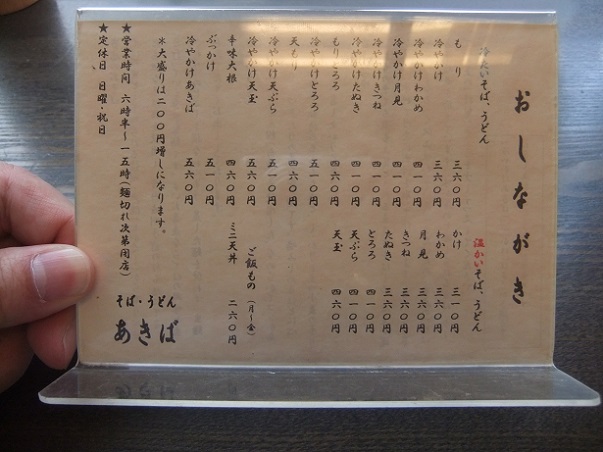 おしながき
冷たいそば、うどん
もり 三六〇円
冷やかけ 三六〇円
冷やかけわかめ 四一〇円
冷やかけ月見 四一〇円
冷やかけきつね 四一〇円
冷やかけたぬき 四一〇円
もりとろろ 四六〇円
冷やかけとろろ 五一〇円
天もり 四六〇円
冷やかけ天ぷら
冷やかけ天玉 五六〇円
辛味大根 四六〇円
ぶっかけ 五一〇円
冷やかけあきば 五六〇円
温かいそば、うどん
かけ 三一〇円
わかめ 三六〇円
月見 三六〇円
きつね 三六〇円
たぬき 三六〇円
とろろ 四一〇円
天ぷら 四一〇円
天玉 四六〇円
ご飯もの(月〜金)
ミニ天丼 二六〇円
＊大盛りは二〇〇円増しになります。
★営業時間 六時半〜一五時(麺切れ次第閉店)
★定休日 日曜・祝日
そば・うどん
あきば